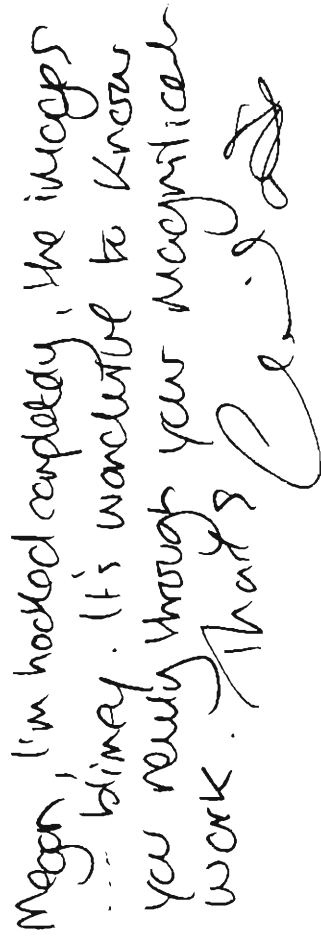 Megan, I'm hooked completely, the images
.... blimey. It's wonderful to know
you newly through your magnificent
work. Thanks